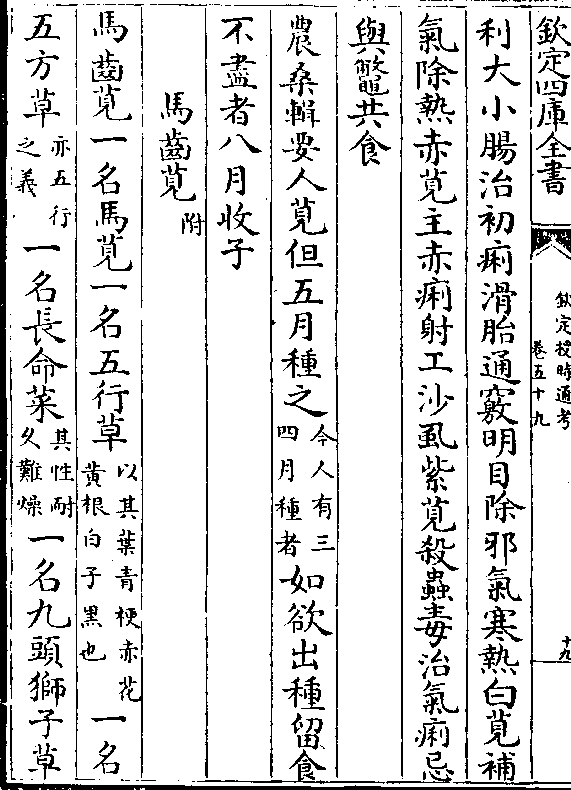 欽定四庫全書
欽定授時通考
卷五十九
十九
利大小腸治初痢滑胎通竅明目除邪氣寒熱白莧補
氣除熱赤莧主赤痢射工沙虱紫莧殺蟲毒治氣痢忌
與鼈共食
農桑輯要人莧但五月種之今人有三四月種者如欲出種留食
不盡者八月收子
馬齒莧附
馬齒莧一名馬莧一名五行草以其葉青梗赤花黄根白子黑也一名
五方草亦五行之義一名長命菜其性耐久難燥一名九頭獅子草